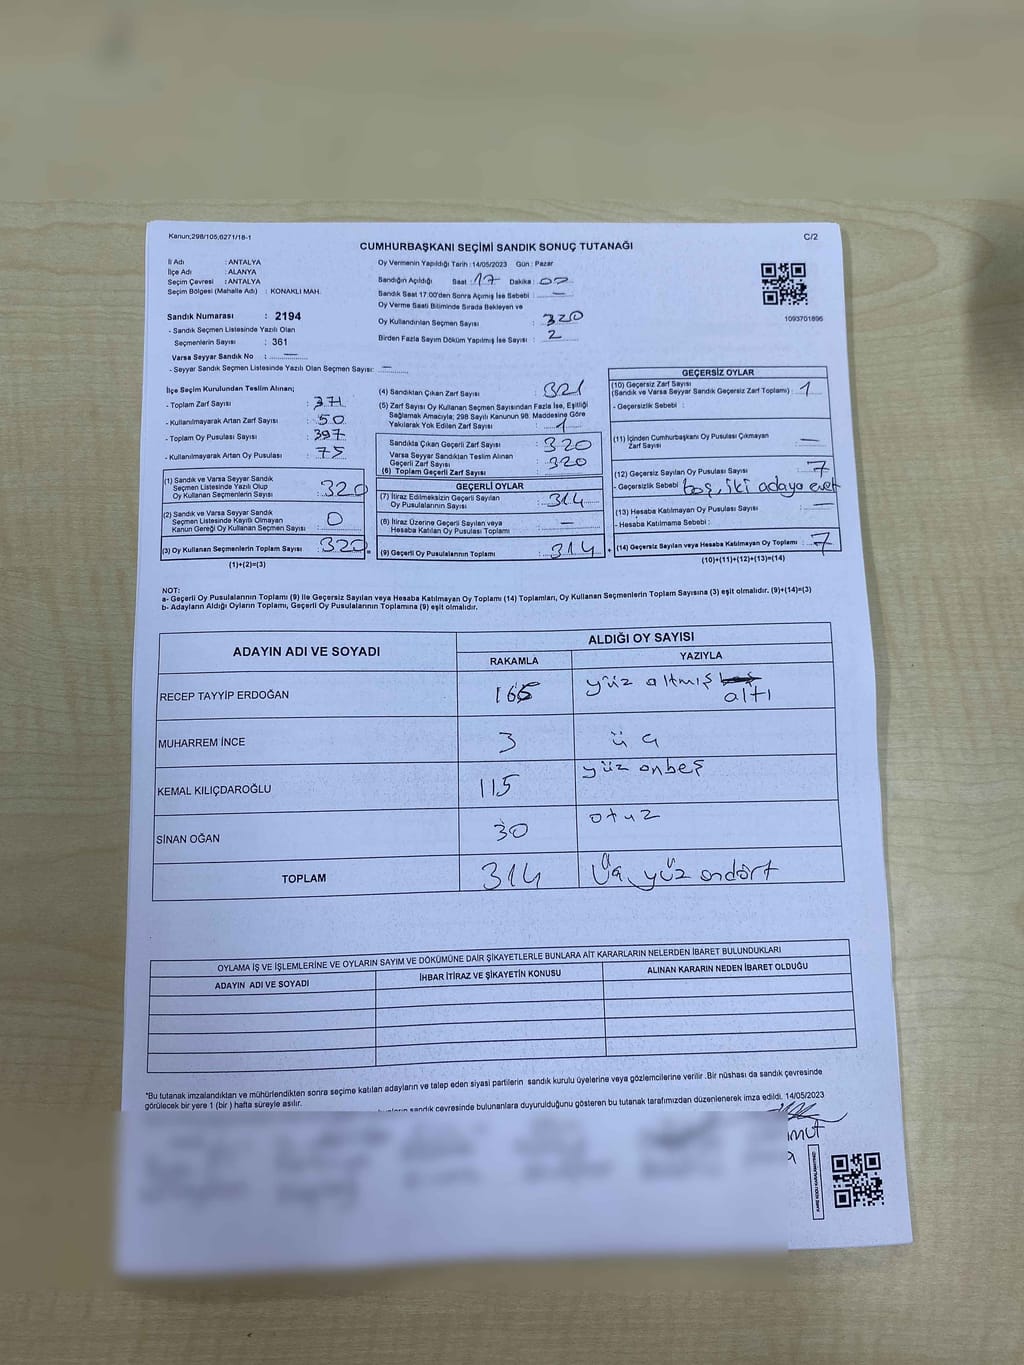 Kanun;298/105,6271/18-1
C/2
CUMHURBAŞKANI SEÇİMİ SANDIK SONUÇ TUTANAĞI
İli Adı : ANTALYA
İlçe Adı : ALANYA
Seçim Çevresi : ANTALYA
Seçim Bölgesi (Mahalle Adı) : KONAKLI MAH.
Sandık Numarası : 2194
- Sandık Seçmen Listesinde Yazılı Olan
Seçmenlerin Sayısı : 361
Varsa Seyyar Sandık No : —
- Seyyar Sandık Seçmen Listesinde Yazılı Olan Seçmen Sayısı: —
Oy Vermenin Yapıldığı Tarih : 14/05/2023 Gün : Pazar
Sandığın Açıldığı Saat : 17 Dakika : 02
Sandık Saat 17:00'den Sonra Açılmış İse Sebebi : —
Oy Verme Saati Bitiminde Sırada Bekleyen ve
Oy Kullandırılan Seçmen Sayısı : 320
Birden Fazla Sayım Döküm Yapılmış İse Sayısı : 2
1093701896
İlçe Seçim Kurulundan Teslim Alınan;
- Toplam Zarf Sayısı : 371
- Kullanılmayarak Artan Zarf Sayısı : 50
- Toplam Oy Pusulası Sayısı : 397
- Kullanılmayarak Artan Oy Pusulası : 75
(1) Sandık ve Varsa Seyyar Sandık
Seçmen Listesinde Yazılı Olup
Oy Kullanan Seçmenlerin Sayısı : 320
(2) Sandık ve Varsa Seyyar Sandık
Seçmen Listesinde Kayıtlı Olmayan
Kanun Gereği Oy Kullanan Seçmen Sayısı : 0
(3) Oy Kullanan Seçmenlerin Toplam Sayısı : 320 =
(1)+(2)=(3)
(4) Sandıktan Çıkan Zarf Sayısı : 321
(5) Zarf Sayısı Oy Kullanan Seçmen Sayısından Fazla İse, Eşitliği
Sağlamak Amacıyla; 298 Sayılı Kanunun 98. Maddesine Göre
Yakılarak Yok Edilen Zarf Sayısı : 1
Sandıkta Çıkan Geçerli Zarf Sayısı : 320
Varsa Seyyar Sandıktan Teslim Alınan
Geçerli Zarf Sayısı : 320
(6) Toplam Geçerli Zarf Sayısı
GEÇERLİ OYLAR
(7) İtiraz Edilmeksizin Geçerli Sayılan
Oy Pusulasının Sayısı : 314
(8) İtiraz Üzerine Geçerli Sayılan veya
Hesaba Katılan Oy Pusulası Toplamı : —
(9) Geçerli Oy Pusulalarının Toplamı : 314 +
GEÇERSİZ OYLAR
(10) Geçersiz Zarf Sayısı
(Sandık ve Varsa Seyyar Sandık Geçersiz Zarf Toplamı) : 1
- Geçersizlik Sebebi :
(11) İçinden Cumhurbaşkanı Oy Pusulası Çıkmayan
Zarf Sayısı : —
(12) Geçersiz Sayılan Oy Pusulası Sayısı : 7
- Geçersizlik Sebebi : boş, iki adaya evet
(13) Hesaba Katılmayan Oy Pusulası Sayısı : —
- Hesaba Katılmama Sebebi :
(14) Geçersiz Sayılan veya Hesaba Katılmayan Oy Toplamı : 7
(10)+(11)+(12)+(13)=(14)
NOT:
a- Geçerli Oy Pusulalarının Toplamı (9) ile Geçersiz Sayılan veya Hesaba Katılmayan Oy Pusulası Toplamı (14) Toplamları, Oy Kullanan Seçmenlerin Toplam Sayısına (3) eşit olmalıdır. (9)+(14)=(3)
b- Adayların Aldığı Oyların Toplamı, Geçerli Oy Pusulalarının Toplamına (9) eşit olmalıdır.
ADAYIN ADI VE SOYADI
ALDIĞI OY SAYISI
RAKAMLA
YAZIYLA
RECEP TAYYİP ERDOĞAN 166 yüz altmış altı
MUHARREM İNCE 3 üç
KEMAL KILIÇDAROĞLU 115 yüz onbeş
SİNAN OĞAN 30 otuz
TOPLAM 314 Üç yüz ondört
OYLAMA İŞ VE İŞLEMLERİNE VE OYLARIN SAYIM VE DÖKÜMÜNE DAİR ŞİKAYETLERLE BUNLARA AİT KARARLARIN NELERDEN İBARET BULUNDUKLARI
ADAYIN ADI VE SOYADI
İHBAR İTİRAZ VE ŞİKAYETİN KONUSU
ALINAN KARARIN NEDEN İBARET OLDUĞU
"Bu tutanak imzalandıktan ve mühürlendikten sonra seçime katılan adayların ve talep eden siyasi partilerin sandık kurulu üyelerine veya gözlemcilerine verilir .Bir nüshası da sandık çevresinde
görülecek bir yere 1 (bir ) hafta süreyle asılır.
sandık çevresinde bulunanlara duyurulduğunu gösteren bu tutanak tarafımızdan düzenlenerek imza edildi. 14/05/2023
KARE KODU KARALAMAYINIZ!